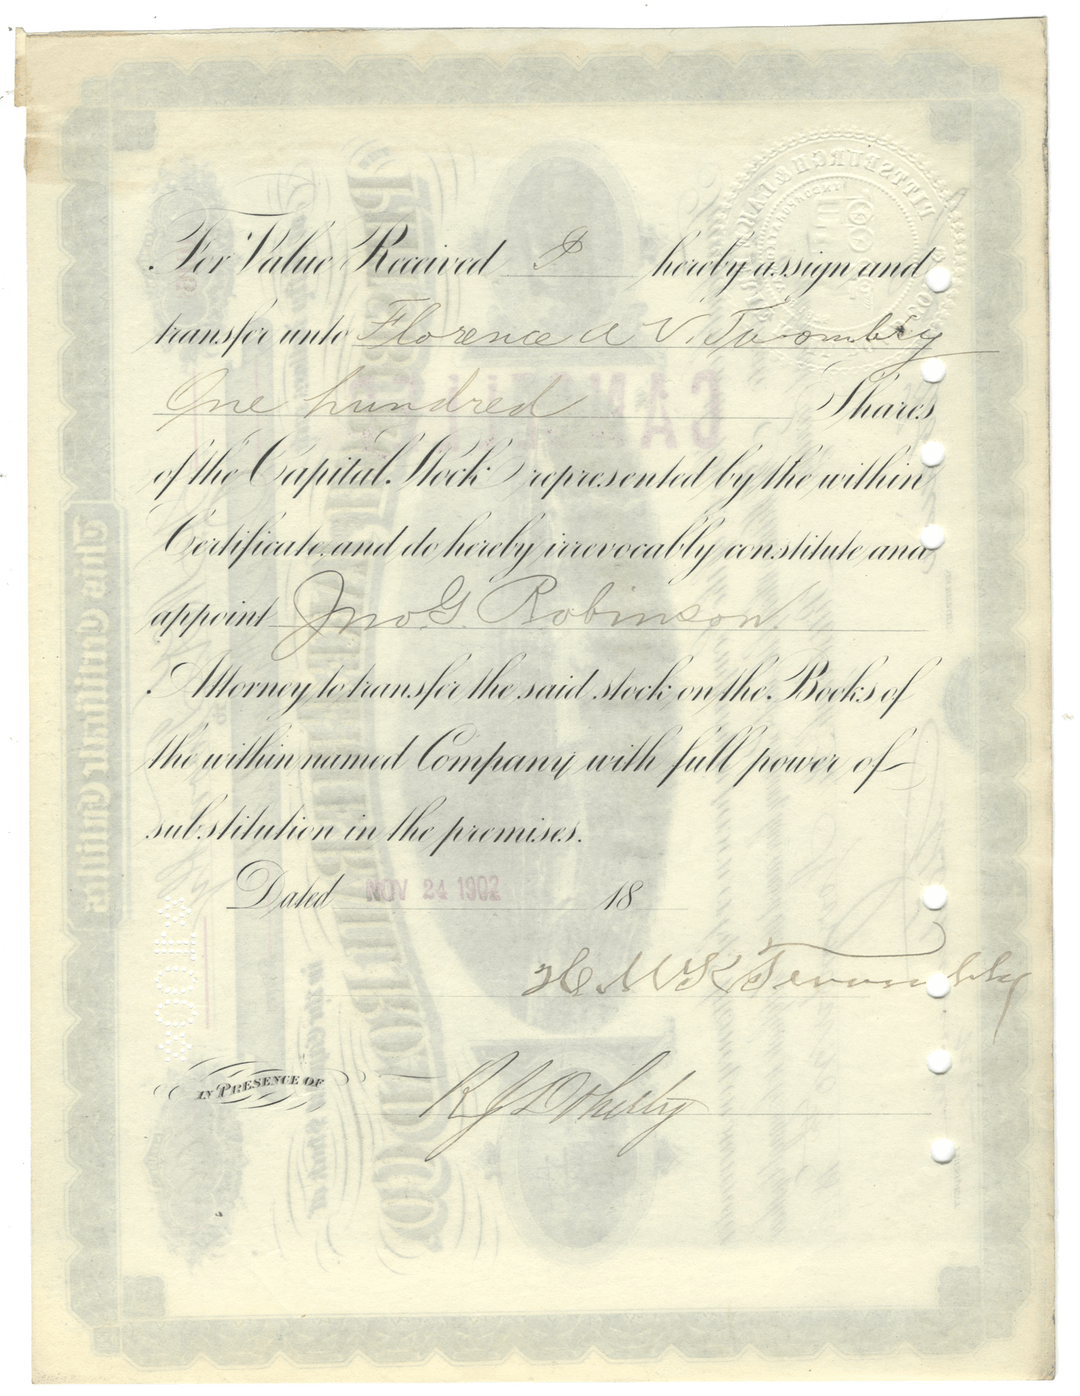 For Value Received I hereby assign and
transfer unto Florence A V. Twombly
One hundred Shares
of the Capital Stock represented by the within
Certificate and do hereby irrevocably constitute and
appoint Jno. G. Robinson
Attorney to transfer the said stock on the Books of
the within named Company with full power of
substitution in the premises.
Dated NOV 24 1902 18
H. McK Twombly
IN PRESENCE OF R J Doherty